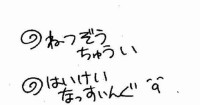 ◎ねつぞう
ちゅうい
◎はいけい
なっすいんぐ ^q^